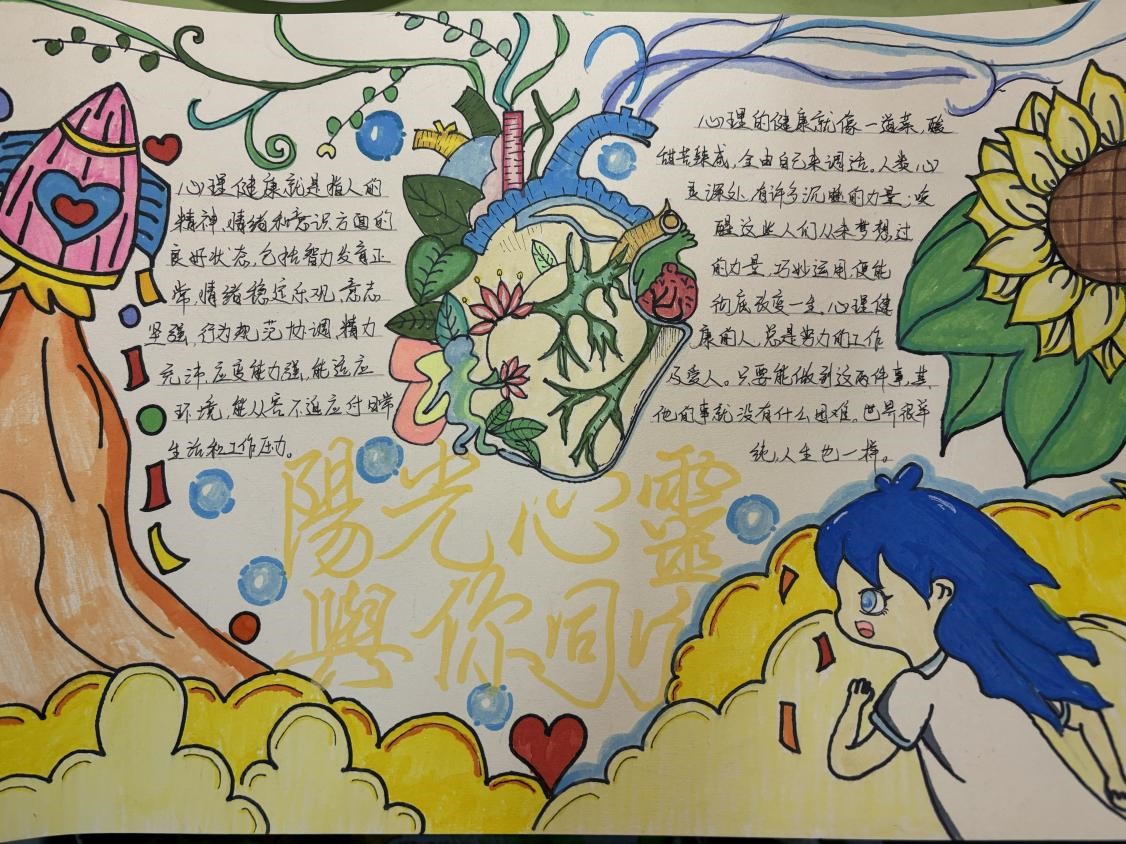 心理健康就是指人的
精神、情绪和意识方面的
良好状态,包括智力发育正
常,情绪稳定乐观,意志
坚强,行为规范协调,精力
充沛,应变能力强,能适应
环境,能从容不迫应付日常
生活和工作压力。
心理的健康就像一道菜,酸
甜苦辣咸,全由自己来调适。人类心
灵深处,有许多沉睡的力量;唤
醒这些人们从来梦想过
的力量,巧妙运用便能
彻底改变一生,心理健
康的人,总是努力的工作
及爱人。只要能做到这两件事,其
他的事就没有什么困难。世界很单
纯,人生也一样。
陽光心靈
與你同行